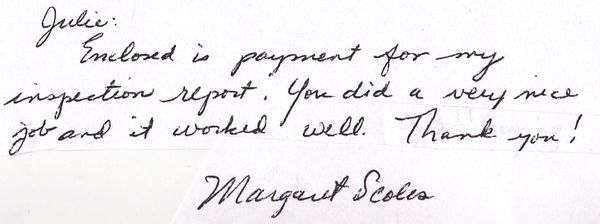 Julie:
Enclosed is payment for my
inspection report. You did a very nice
job and it worked well. Thank you!
Margaret Scoles